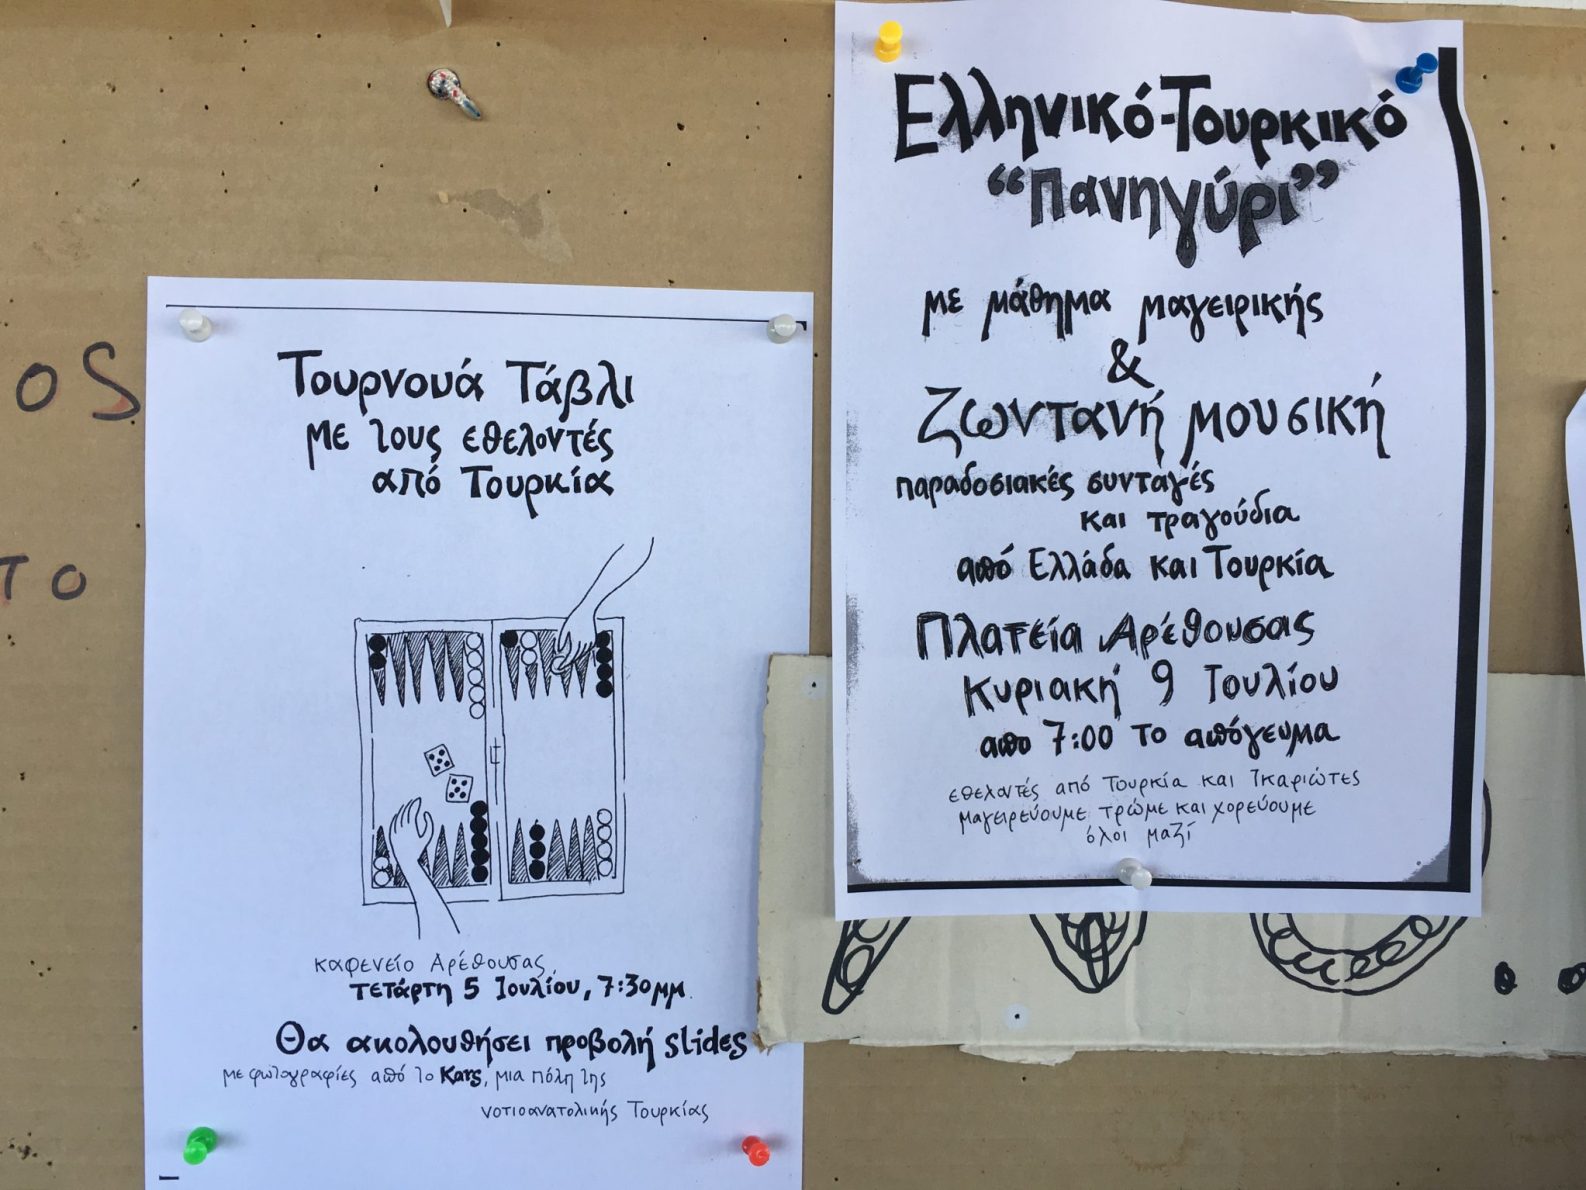 ος
το
Τουρνουά Τάβλι
με τους εθελοντές
από Τουρκία
καφενείο Αρέθουσας,
τετάρτη 5 Ιουλίου, 7:30μμ.
Θα ακολουθήσει προβολή slides
με φωτογραφίες από το Kars, μια πόλη της
νοτιοανατολικής Τουρκίας
Ελληνικό-Τουρκικό
“Πανηγύρι”
με μάθημα μαγειρικής
&
ζωντανή μουσική
παραδοσιακές συνταγές
και τραγούδια
από Ελλάδα και Τουρκία
Πλατεία Αρέθουσας
Κυριακή 9 Ιουλίου
απο 7:00 το απόγευμα
εθελοντές από Τουρκία και Ικαριώτες
μαγειρεύουμε τρώμε και χορεύουμε
όλοι μαζί